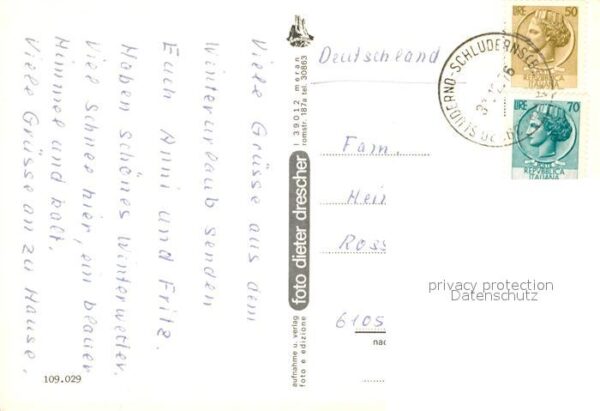 Viele Grüsse aus dem
Winterurlaub senden
Euch Anni und Fritz.
Haben schönes Winterwetter.
Viel Schnee hier, ein blauer
Himmel und kalt.
Viele Grüsse an zu Hause.
109.029
aufnahme u. verlag
foto e edizione
foto dieter drescher
I 39012 meran
romstr. 187a tel. 30863
Deutschland
Fam.
Hein
Ross
6105
nac
LIRE 50
REPVBBLICA
ITALIANA
LIRE 70
REPVBBLICA
ITALIANA
SLUDERNO-SCHLUDERNS
privacy protection
Datenschutz